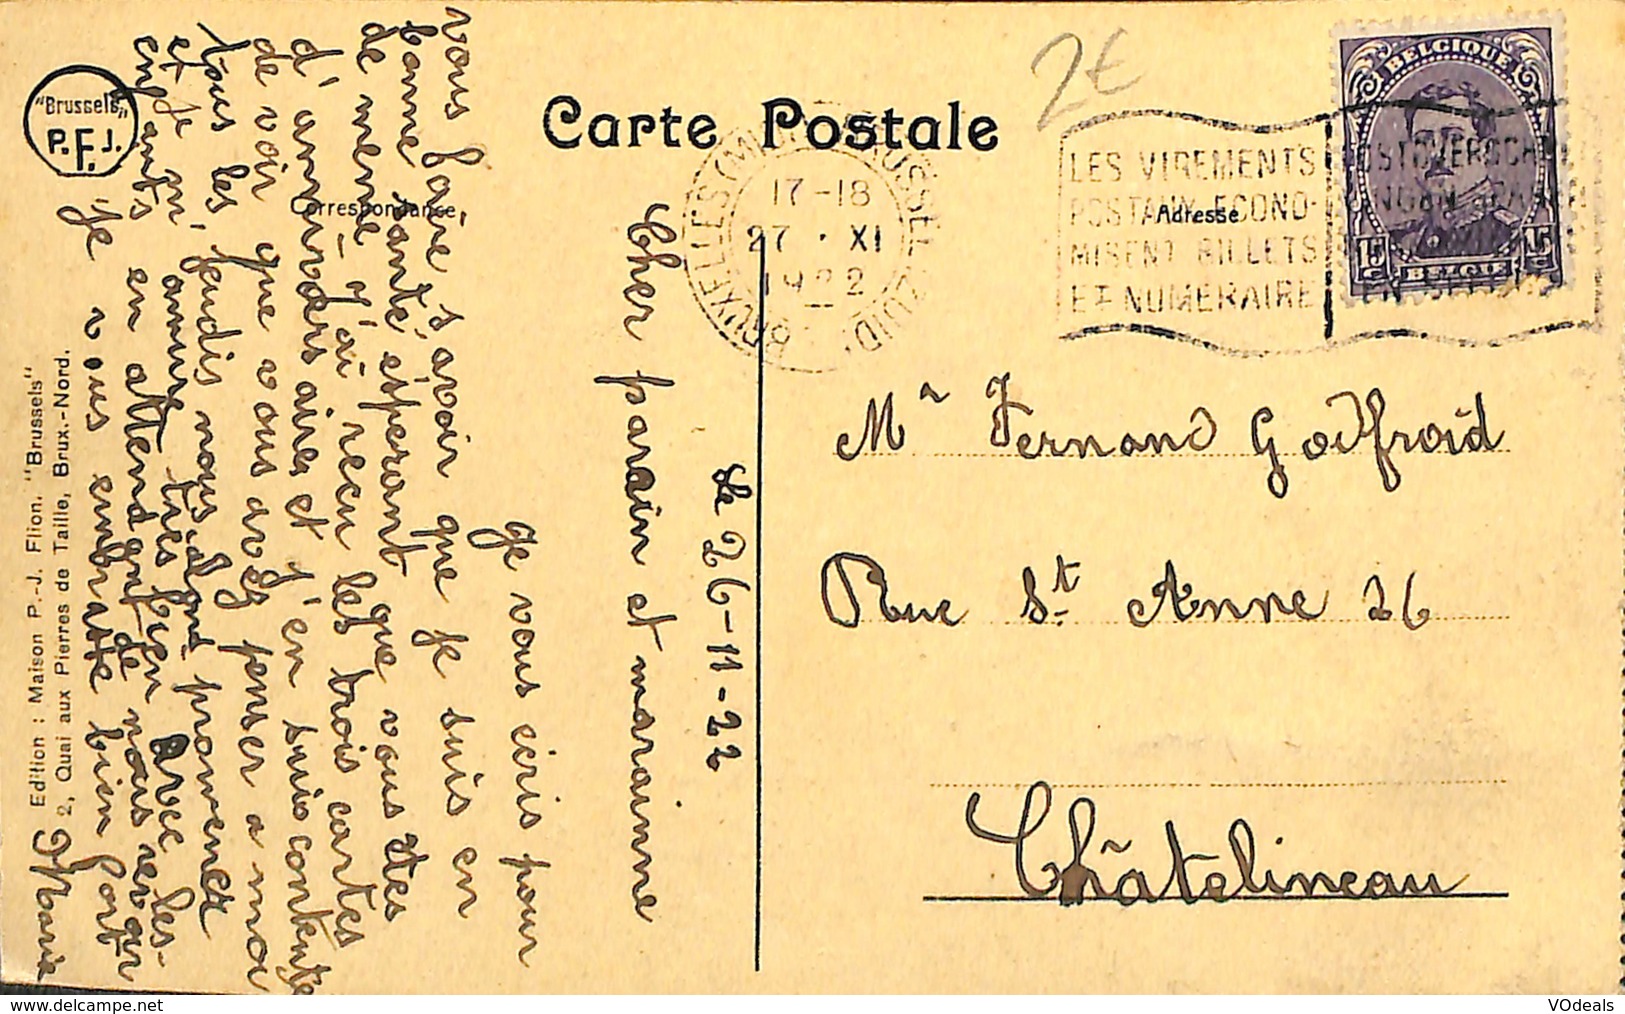 Carte Postale
Correspondance
Adresse
"Brussels"
P.F.J.
Edition : Maison P.-J. Flion. "Brussels"
2, Quai aux Pierres de Taille, Brux.-Nord.
2€
BELGIQUE
15 c
15 c
BELGIE
BRUXELLES (MIDI) BRUSSEL (ZUID)
17-18
27 · XI
1922
LES VIREMENTS
POSTAUX ECONO-
MISENT BILLETS
ET NUMERAIRE
Le 26-11-22
Cher parain et maraine
Je vous écris pour
vous faire s'avoir que je suis en
bonne santé éspérant que vous etes
de meme J'ai recu les trois cartes
d'anniversaires et J'en suis contente
de voir que vous avez penser a moi
tous les jeudis nous allons promener
et je m'amuse tres bien avec les
enfants en attendant de nous revoir
je vous embrasse bien fort
Marie
Mr Fernand Godfroid
Rue St. Anne 26
Châtelineau
VOdeals